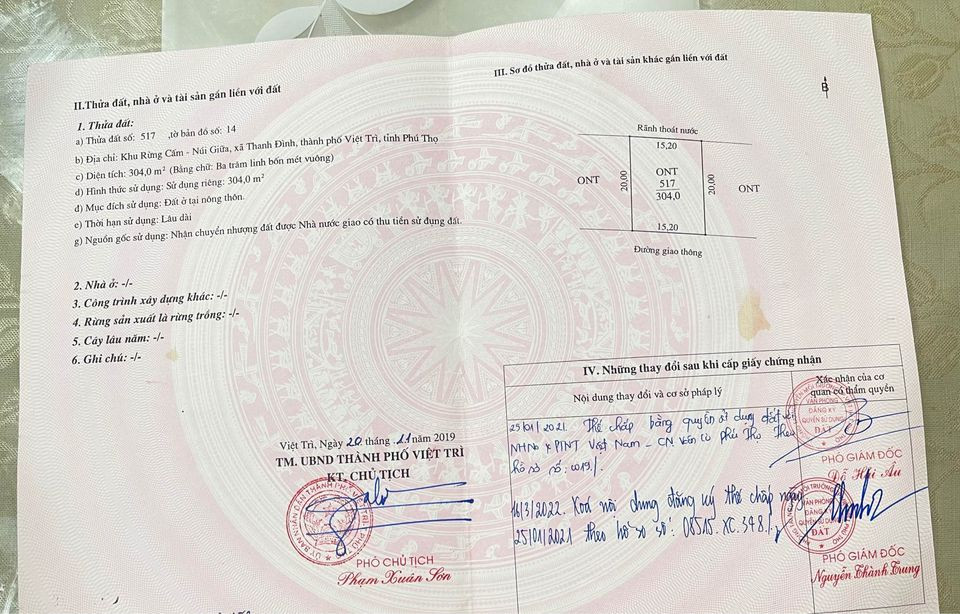 II.Thửa đất, nhà ở và tài sản gắn liền với đất
1. Thửa đất:
a) Thửa đất số: 517 ,tờ bản đồ số: 14
b) Địa chỉ: Khu Rừng Cấm - Núi Giữa, xã Thanh Đình, thành phố Việt Trì, tỉnh Phú Thọ
c) Diện tích: 304,0 m² (Bằng chữ: Ba trăm linh bốn mét vuông)
d) Hình thức sử dụng: Sử dụng riêng: 304,0 m²
đ) Mục đích sử dụng: Đất ở tại nông thôn.
e) Thời hạn sử dụng: Lâu dài
g) Nguồn gốc sử dụng: Nhận chuyển nhượng đất được Nhà nước giao có thu tiền sử dụng đất.
2. Nhà ở: -/-
3. Công trình xây dựng khác: -/-
4. Rừng sản xuất là rừng trồng: -/-
5. Cây lâu năm: -/-
6. Ghi chú: -/-
Việt Trì, Ngày 20 tháng 11 năm 2019
TM. UBND THÀNH PHỐ VIỆT TRÌ
KT. CHỦ TỊCH
PHÓ CHỦ TỊCH
Phạm Xuân Sơn
III. Sơ đồ thửa đất, nhà ở và tài sản khác gắn liền với đất
B
Rãnh thoát nước
15,20
ONT
20,00
ONT
517
304,0
20,00
ONT
15,20
Đường giao thông
IV. Những thay đổi sau khi cấp giấy chứng nhận
Nội dung thay đổi và cơ sở pháp lý
Xác nhận của cơ
quan có thẩm quyền
25/01/2021. Thế chấp bằng quyền sử dụng đất với
NHNo & PTNT Việt Nam - CN Vân Cơ Phú Thọ theo
hồ sơ số:
VĂN PHÒNG
ĐĂNG KÝ
QUYỀN SỬ DỤNG
ĐẤT
PHÓ GIÁM ĐỐC
Đỗ Hải Âu
16/3/2022. Xoá nội dung đăng ký thế chấp ngày
25/01/2021 theo hồ sơ số: 08515.XC.348./.
VĂN PHÒNG
ĐĂNG KÝ
QUYỀN SỬ DỤNG
ĐẤT
PHÓ GIÁM ĐỐC
Nguyễn Thành Trung